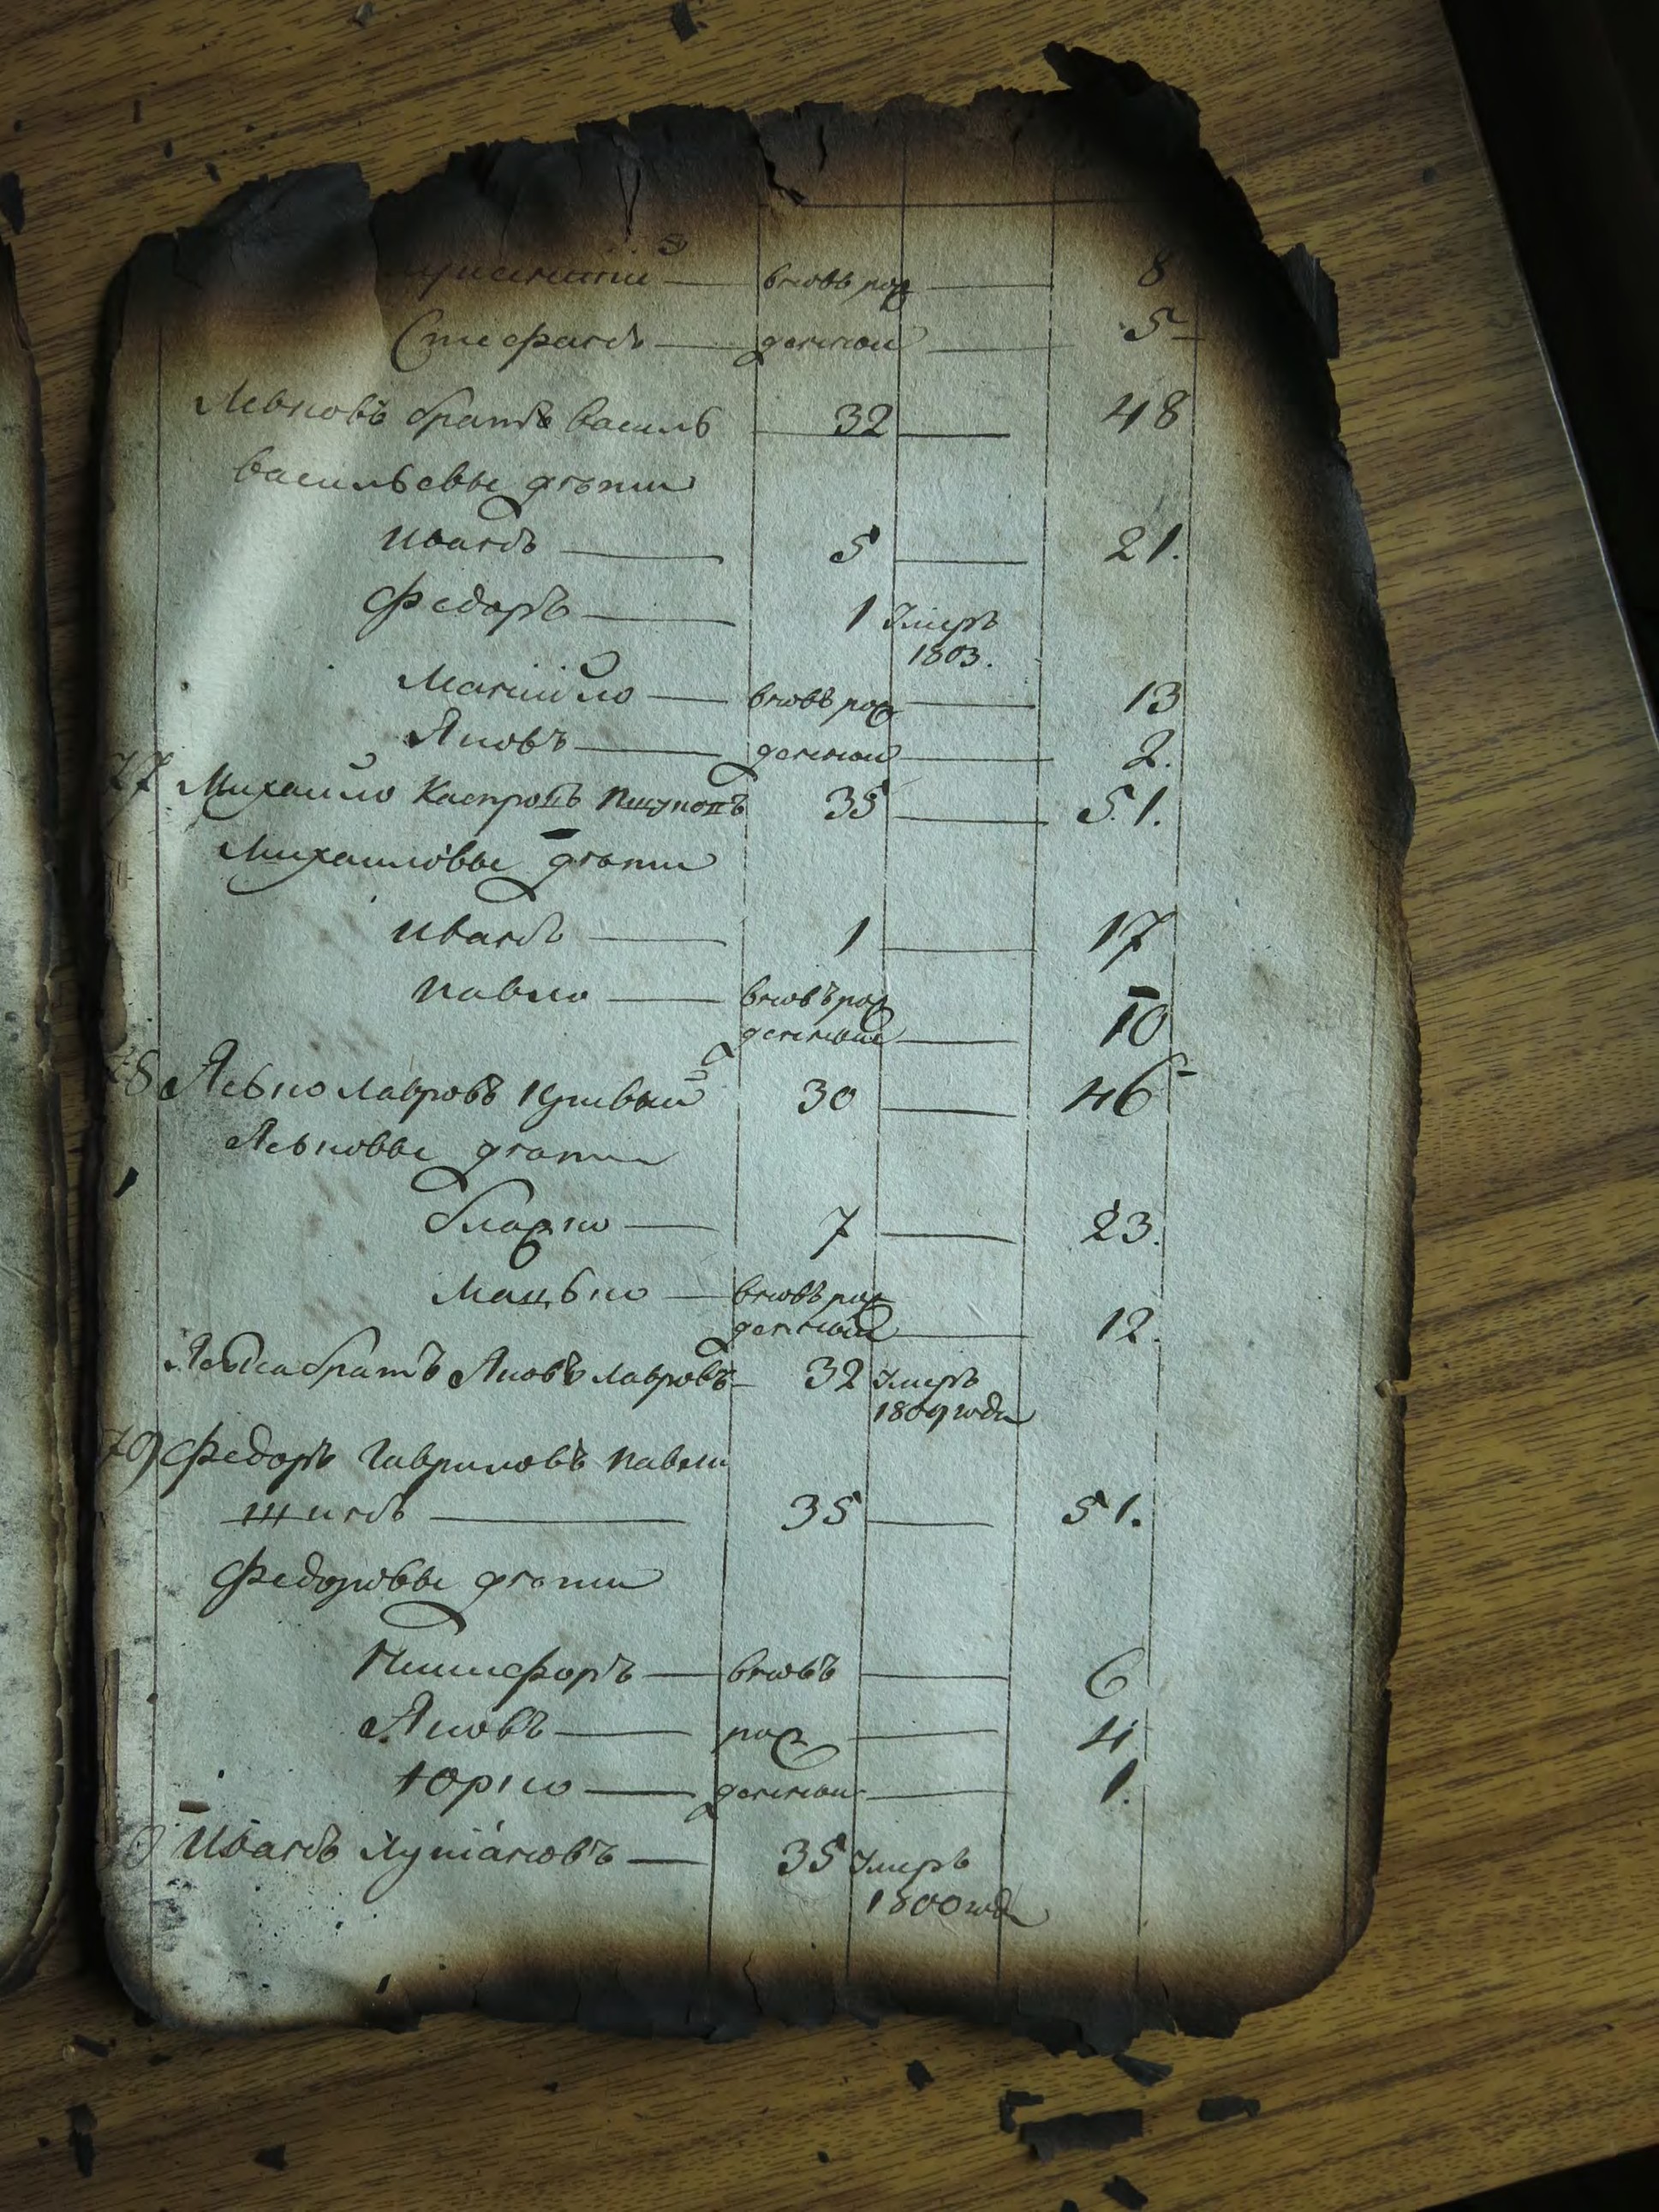 вновь рож 8
Стефанъ — денной — 5
Левковъ братъ василь 32 — 48
васильевы дѣти
иванъ — 5 — 21.
Федоръ — 1 Умеръ
1803.
Манойло — вновь рож — 13
Яковъ — денной — 2.
77 Михайло Каспровъ 35 — 51.
Михайловы дѣти
иванъ — 1 — 17
павло — вновъ рож
денной — 10
78 Левко лавровъ кривый 30 — 46
Левковы дѣти
блажко — 7 — 23.
Мацько — вновь рож
денной — 12.
Левка братъ Яковъ лавровъ — 32 Умеръ
1809 года
79 Федоръ Гавриловъ павли
шинъ — 35 — 51.
Федоровы дѣти
Никифоръ — вновь — 6
Яковъ — рож — 4
Юрко — денной — 1.
Иванъ лукановъ — 35 Умеръ
1800 года